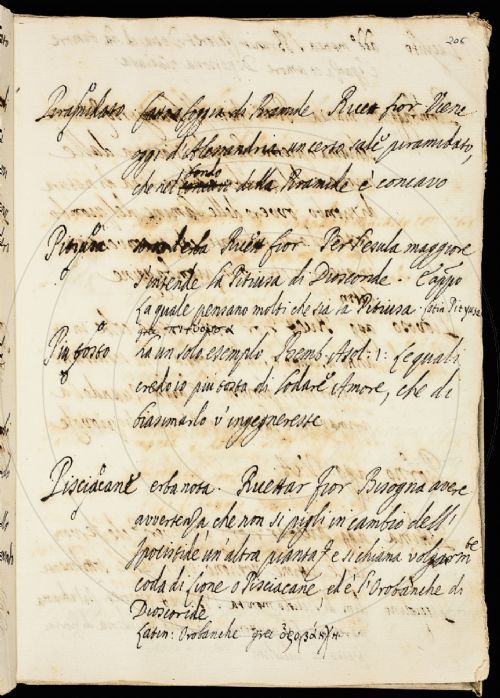 206
Piramidato. fatto a foggia di Piramide. Ricett fior. Viene
oggi d'Alessandria un certo sale piramidato,
che nel fondo della Piramide è concavo
Pitiusa erba Ricett fior. Per l'esula maggiore
s'intende la Pitiusa di Dioscoride.
la quale pensano molti che sia la Pitiusa. latin Pityusa
gre πιτύουσα
Piu tosto ha un solo esemplo. Bemb. Asol: 1: le quali
credo io piu tosto di lodare Amore, che di
biasimarlo v'ingegnereste
Pisciacane erba nota. Ricettar fior Bisogna avere
avvertenza che non si pigli in cambio dell'
Ipocistide un'altra pianta e si chiama volgarmte
coda di lione o Pisciacane, ed è l'Orobanche di
Dioscoride
Latin: Orobanche gre ὀροβάγχη